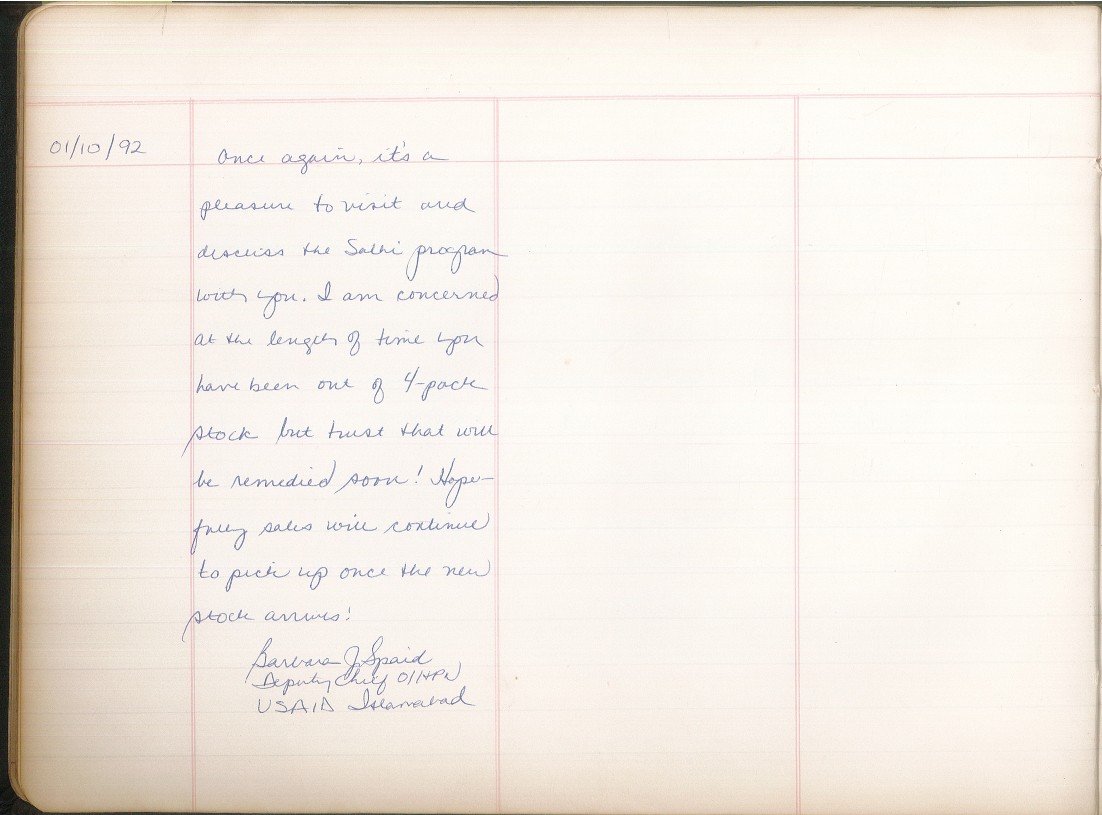 01/10/92
Once again, it's a
pleasure to visit and
discuss the Sathi program
with you. I am concerned
at the length of time you
have been out of 4-pack
stock but trust that will
be remedied soon! Hope-
fully sales will continue
to pick up once the new
stock arrives!
Barbara J Spaid
Deputy Chief O/HPN
USAID Islamabad